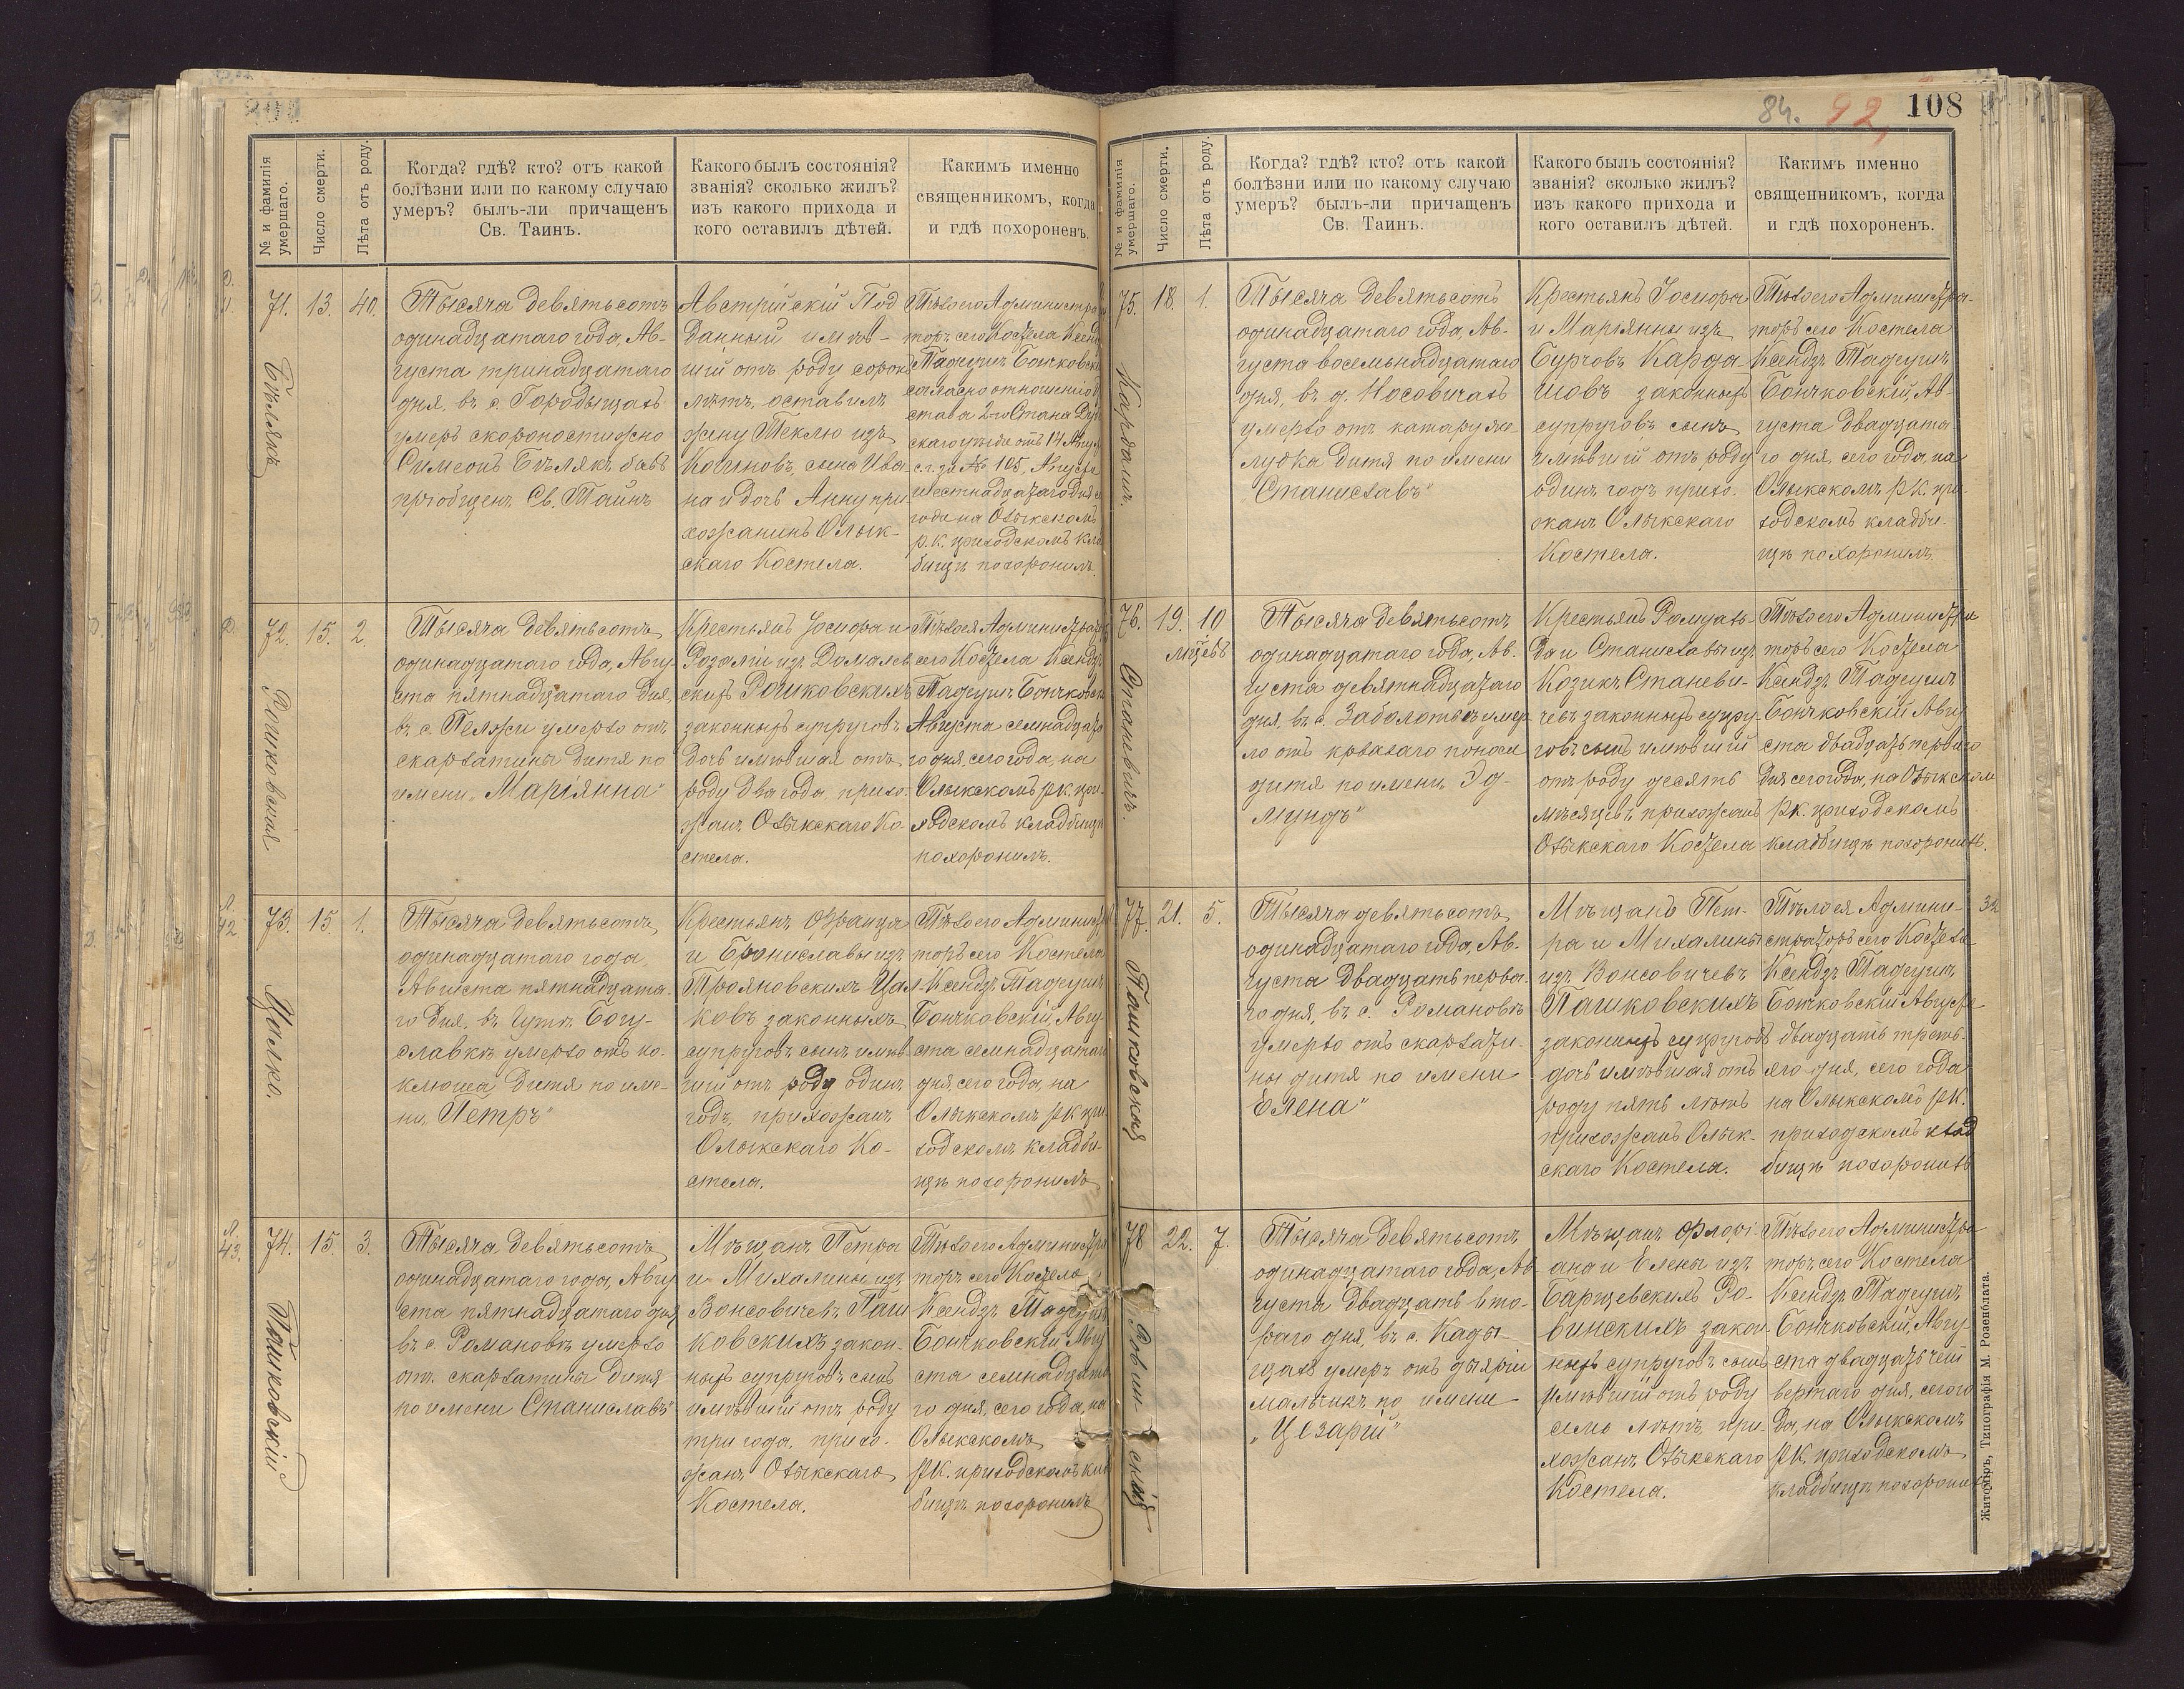 84. 92, 108
№ и фамилія
умершаго.
Число смерти.
Лѣта отъ роду.
Когда? гдѣ? кто? отъ какой
болѣзни или по какому случаю
умеръ? былъ-ли причащенъ
Св. Таинъ.
Какого былъ состоянія?
званія? сколько жилъ?
изъ какого прихода и
кого оставилъ дѣтей.
Какимъ именно
священникомъ, когда
и гдѣ похороненъ.
71. 13. 40.
Бѣлякъ
Тысяча девятьсотъ
одинадцатаго года, Ав-
густа тринадцатаго
дня, въ с. Городыщахъ
умеръ скоропостижно
Симеонъ Бѣлякъ бывъ
пріобщенъ Св. Таинъ
Австрійскій Под
данный имѣв-
шій отъ роду сорокъ
лѣтъ, оставилъ
жену Теклю изъ
сына Ива-
на и дочь Анну при
хожанинъ Олык-
скаго Костела.
Тѣло его Администра
торъ сего Костела Ксендзъ
Тадеушъ Бончковскій
согласно отношенію
става 2-го Стана Ду
скаго уѣзда отъ 14 Авгу
с.г. за № 105, Августа
шестнадцатаго дня с
года на Олыкскомъ
р.к. приходскомъ кла
бищѣ похоронилъ.
72. 15. 2.
Рошковская
Тысяча девятьсотъ
одинадцатаго года, Авгу
ста пятнадцатаго дня,
въ с. Пелжи умерло отъ
скарлатины дитя по
имени „Маріянна"
Крестьянъ Іосифа и
Розаліи изъ Домалев
скихъ Рошковскихъ
законныхъ супруговъ
дочь имѣвшая отъ
роду два года прихо-
жанъ Олыкскаго Ко-
стела.
Тѣло ея Администраторъ
сего Костела Ксендзъ
Тадеушъ Бончковск
Августа семнадцата
го дня, сего года, на
Олыкскомъ р.к. при-
ходскомъ кладбищѣ
похоронилъ.
73. 15. 1.
Цалко.
Тысяча девятьсотъ
одинадцатаго года,
Августа пятнадцата-
го дня, въ Гутѣ Богу-
славкѣ умерло отъ ко-
клюша дитя по име-
ни „Петръ"
Крестьянъ Франца
и Брониславы изъ
Трояновскихъ Цал
ковъ законныхъ
супруговъ сынъ имѣв
шій отъ роду одинъ
годъ, прихожанъ
Олыкскаго Ко-
стела.
Тѣло его Администра
торъ сего Костела
Ксендзъ Тадеушъ
Бончковскій, Авгу
ста семнадцатаго
дня, сего года, на
Олыкскомъ р.к. при
ходскомъ кладби-
щѣ похоронилъ
74. 15. 3.
Пашковскій
Тысяча девятьсотъ
одинадцатаго года, Авгу
ста пятнадцатаго дня,
въ с. Романовѣ умерло
отъ скарлатины дитя
по имени Станиславъ"
Мѣщанъ Петра
и Михалины изъ
Вонсовичевъ Паш
ковскихъ закон-
ныхъ супруговъ сынъ
имѣвшій отъ роду
три года, прихо-
жанъ Олыкскаго
Костела.
Тѣло его Администра
торъ сего Костела
Ксендзъ Тадеушъ
Бончковскій Авгу
ста семнадцата
го дня, сего года, на
Олыкскомъ
р.к. приходскомъ кла
бищѣ похоронилъ
№ и фамилія
умершаго.
Число смерти.
Лѣта отъ роду.
Когда? гдѣ? кто? отъ какой
болѣзни или по какому случаю
умеръ? былъ-ли причащенъ
Св. Таинъ.
Какого былъ состоянія?
званія? сколько жилъ?
изъ какого прихода и
кого оставилъ дѣтей.
Какимъ именно
священникомъ, когда
и гдѣ похороненъ.
75. 18. 1.
Кардашъ.
Тысяча девятьсотъ
одинадцатаго года, Ав-
густа восемьнадцатаго
дня, въ д. Носовичахъ
умерло отъ катару же-
лудка дитя по имени
„Станиславъ"
Крестьянъ Іосифа
и Маріянны изъ
Бурчовъ Карда-
шовъ законныхъ
супруговъ сынъ
имѣвшій отъ роду
одинъ годъ прихо-
жанъ Олыкскаго
Костела.
Тѣло его Администра-
торъ сего Костела
Ксендзъ Тадеушъ
Бончковскій, Ав-
густа двадцата
го дня, сего года, на
Олыкскомъ р.к. при-
ходскомъ кладби-
щѣ похоронилъ
76. 19. 10
мцевъ
Станевичъ.
Тысяча девятьсотъ
одинадцатаго года, Ав-
густа девятнадцатаго
дня, въ с. Заболотьѣ умер
ло отъ кроваваго поноса
дитя по имени „Эд-
мундъ"
Крестьянъ Ромуаль-
да и Станиславы изъ
Козикъ Станеви-
чевъ законныхъ супру-
говъ сынъ имѣвшій
отъ роду десять
мѣсяцевъ, прихожанъ
Олыкскаго Костела
Тѣло его Администра
торъ сего Костела
Ксендзъ Тадеушъ
Бончковскій Авгу
ста двадцать перваго
дня сего года, на Олыкском
р.к. приходскомъ
кладбищѣ похоронилъ.
77. 21. 5.
Пашковская
Тысяча девятьсотъ
одинадцатаго года, Ав-
густа двадцать перва-
го дня, въ с. Романовѣ
умерло отъ скарлати-
ны дитя по имени
„Елена"
Мѣщанъ Пет-
ра и Михалины
изъ Вонсовичевъ
Пашковскихъ
законныхъ супруговъ
дочь имѣвшая отъ
роду пять лѣтъ
прихожанъ Олык-
скаго Костела.
Тѣло ея Админи-
страторъ сего Костела
Ксендзъ Тадеушъ
Бончковскій Августа
двадцать треть-
яго дня, сего года
на Олыкскомъ р.к.
приходскомъ клад
бищѣ похоронилъ
78 22. 7.
Тысяча девятьсотъ
одинадцатаго года, Ав
густа двадцать вто-
раго дня, въ с. Кады-
щахъ умеръ отъ дыяріи
мальчикъ по имени
„Цезарій"
Мѣщанъ Флорі-
ана и Елены изъ
Барщевскихъ Ро-
винскихъ закон-
ныхъ супруговъ сынъ
имѣвшій отъ роду
семь лѣтъ, при-
хожанъ Олыкскаго
Костела.
Тѣло его Администра
торъ сего Костела
Ксендзъ Тадеушъ
Бончковскій, Авгу
ста двадцать чет
вертаго дня, сего го
да, на Олыкскомъ
р.к. приходскомъ
кладбищѣ похоронилъ
Житоміръ, Типографія М. Розенблата.